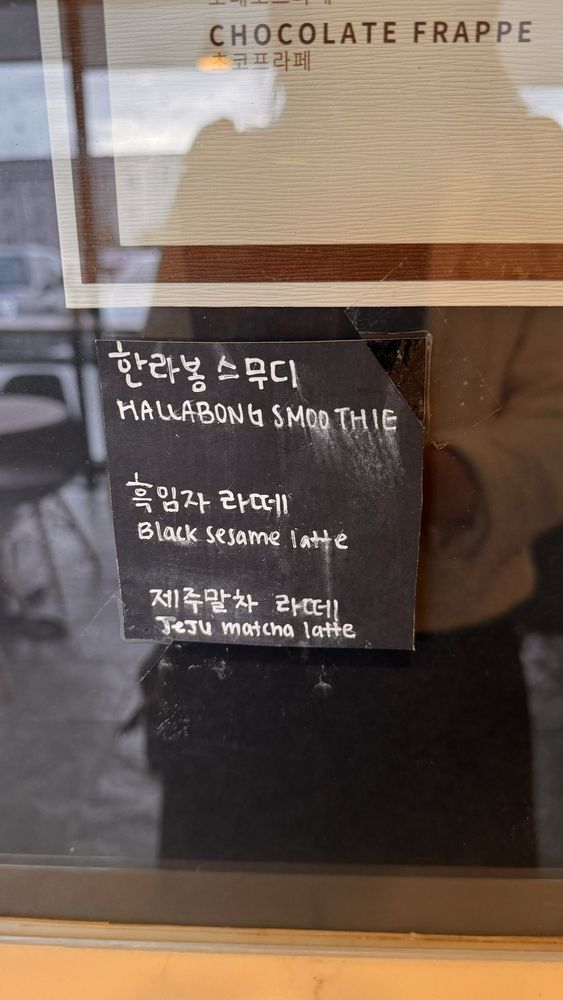 CHOCOLATE FRAPPE
초코프라페
한라봉 스무디
HALLABONG SMOOTHIE
흑임자 라떼
Black sesame latte
제주말차 라떼
JeJU matcha latte